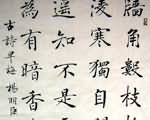 牆角數枝
凌寒獨自
遙知不是
為有暗香
古詩早梅 楊明臣